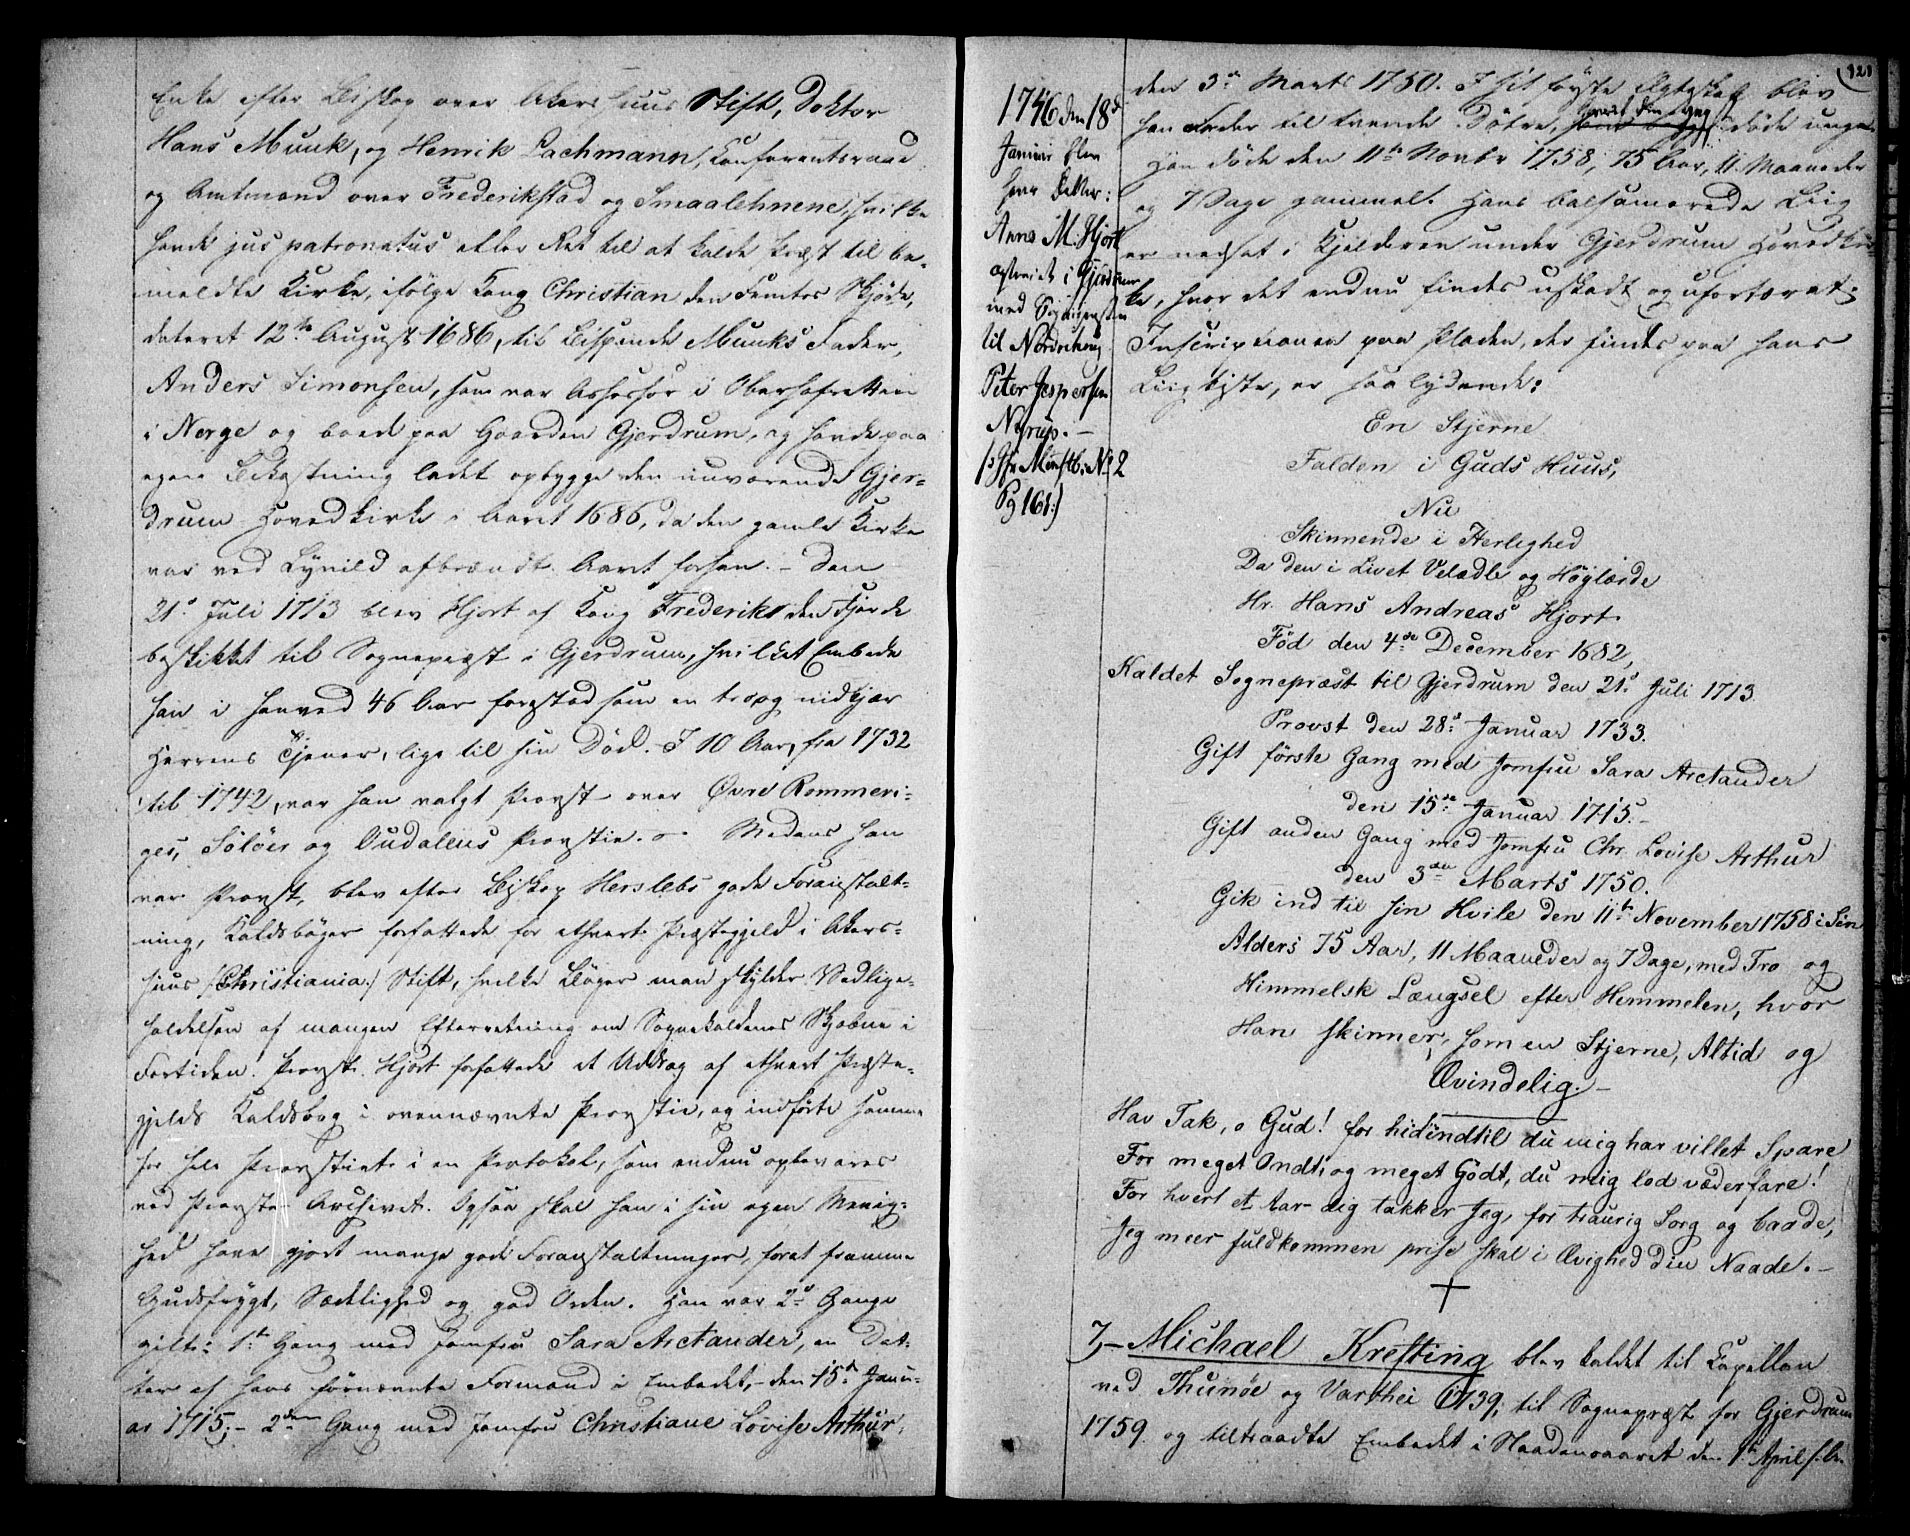 Enke efter Biskop over Akershuus Stift, Doktor
Hans Munk, og Henrik Lachmann, Conferentsraad
og Amtmand over Frederikstad og Smaalehnene, hvilke
havde jus patronatus eller Ret til at kalde Præst til be-
meldte Kirke, ifölge Kong Christian den Femtes Skjöde,
dateret 12te August 1686, til Bispinde Munks Fader,
Anders Simonsen, som var Assessor i Oberhofretten
i Norge og boede paa Gaarden Gjerdrum, og havde paa
egen Bekostning ladet opbygge den nuværende Gjer-
drum Hovedkirke i Aaret 1686, da den gamle Kirke
var ved Lynild afbrændt Aaret forhen. - Den
21de Juli 1713 blev Hjort af Kong Frederik den Fjerde
beskikket til Sognepræst i Gjerdrum, hvilket Embede
han i henved 46 Aar forestod som en tro og nidkjær
Herrens Tjener, lige til sin Död. I 10 Aar, fra 1732
til 1742, var han valgt Provst over Øvre Rommeri-
ges, Solöers og Oudalens Provstie. Medens han
var Provst, blev efter Biskop Herslebs gode Foranstalt-
ning, Kaldsböger forfattede for ethvert Præstegjeld i Akers-
huus (Christiania) Stift, hvilke Böger man skylder Vedlige-
holdelsen af mangen Efterretning om Sognekaldenes Skjæbne i
Fortiden. Provst Hjort forfattede et Uddrag af ethvert Præste-
gjelds Kaldsbog i ovennævnte Provstie, og indförte samme
for hele Provstiet i en Protokol, som endnu opbevares
ved Provste-Archivet. Ogsaa skal han i sin egen Menig-
hed have gjort mange gode Foranstaltninger, for at fremme
Gudsfrygt, Sædelighed og god Orden. Han var 2de Gange
gift: 1ste Gang med Jomfru Sara Arctander, en Dat-
ter af hans förnævnte Formand i Embedet, - den 15de Janu-
ar 1715; - 2den Gang med Jomfru Christiane Lovise Arthur,
121
1746 den 18de
Januar blev
hans Datter:
Anna M. Hjort
copuleret i Gjerdrum
med Sognepræsten
til Nordrehoug
Peter Jespersen
Nyrup. -
Minstb. No 2
Pg 161:)
den 3die Marts 1750. I sit förste Ægteskab blev
han Fader til tvende Döttre, döde unge.
Han döde den 11te Novbr 1758, 75 Aar, 11 Maaneder
og 7 Dage gammel. Hans balsamerede Liig
er nedsat i Kjelderen under Gjerdrum Hovedkir-
ke, hvor det endnu findes uskadt og ufortæret;
Inscriptionen paa Pladen, der findes paa hans
Liigkiste, er saalydende:
En Stjerne
Falden i Guds Huus,
Nu
Skinnende i Herlighed
Da den i Livet Velædle og Höglærde
Hr. Hans Andreas Hjort.
Föd den 4de December 1682,
Kaldet Sognepræst til Gjerdrum den 21de Juli 1713.
Provst den 28de Januar 1733.
Gift förste Gang med Jomfru Sara Arctander
den 15de Januar 1715. -
Gift anden Gang med Jomfru Chr. Lovise Arthur
den 3die Marts 1750.
Gik ind til sin Hvile den 11te November 1758 i Sin
Alders 75 Aar, 11 Maaneder og 7 Dage, med Tro og
Himmelsk Længsel efter Hemmelen, hvor
Han skinner, som en Stjerne, Altid og
Ævindelig. -
Hav Tak, o Gud! for hidindtil du mig har villet Spare
For meget Ondt, og meget Godt, du mig lod væderfare!
For hvert et Aar dig takker Jeg, for traurig Sorg og baade,
Jeg meer fuldkommen prise skal i Ævighed din Naade. -
7, - Michael Krefting blev kaldet til Kapellan
ved Thunöe og Varthei 1739, til Sognepræst for Gjerdrum
1759. og tiltraadte Embedet i Naadensaaret den 1ste April